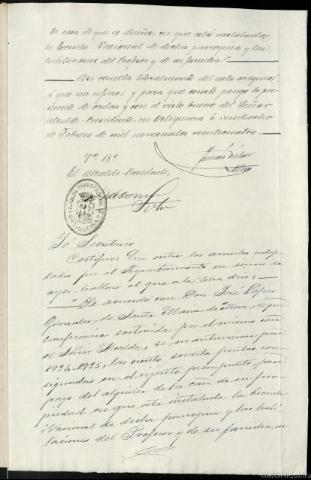 la casa de que es dueño, en que está instalada
la Escuela Nacional de dicha parroquia y las
habitaciones del Profesor y de su familia."
Así resulta literalmente del acta original
á que me refiero y para que conste pongo la pre-
sente de orden y con el visto bueno del Señor
Alcalde-Presidente, en Ortigueira á veintiocho
de Febrero de mil novecientos veinticuatro.
Vº Bº
El Alcalde-Presidente,
Yo Secretario
Certifico: Que entre los asuntos adop-
tados por el Ayuntamiento en sesión de
ayer, hállase el que á la letra dice:
"De acuerdo con Don José López
González, de Santa María de, según
conferencia sostenida por el mismo con
el Señor Alcalde, se mantienen para
1924-1925, las ciento setenta pesetas con-
signadas en el vigente presupuesto, para
pago del alquiler de la casa de su pro-
piedad en que está instalada la Escuela
Nacional de dicha parroquia y las habi-
taciones del Profesor y de su familia, en